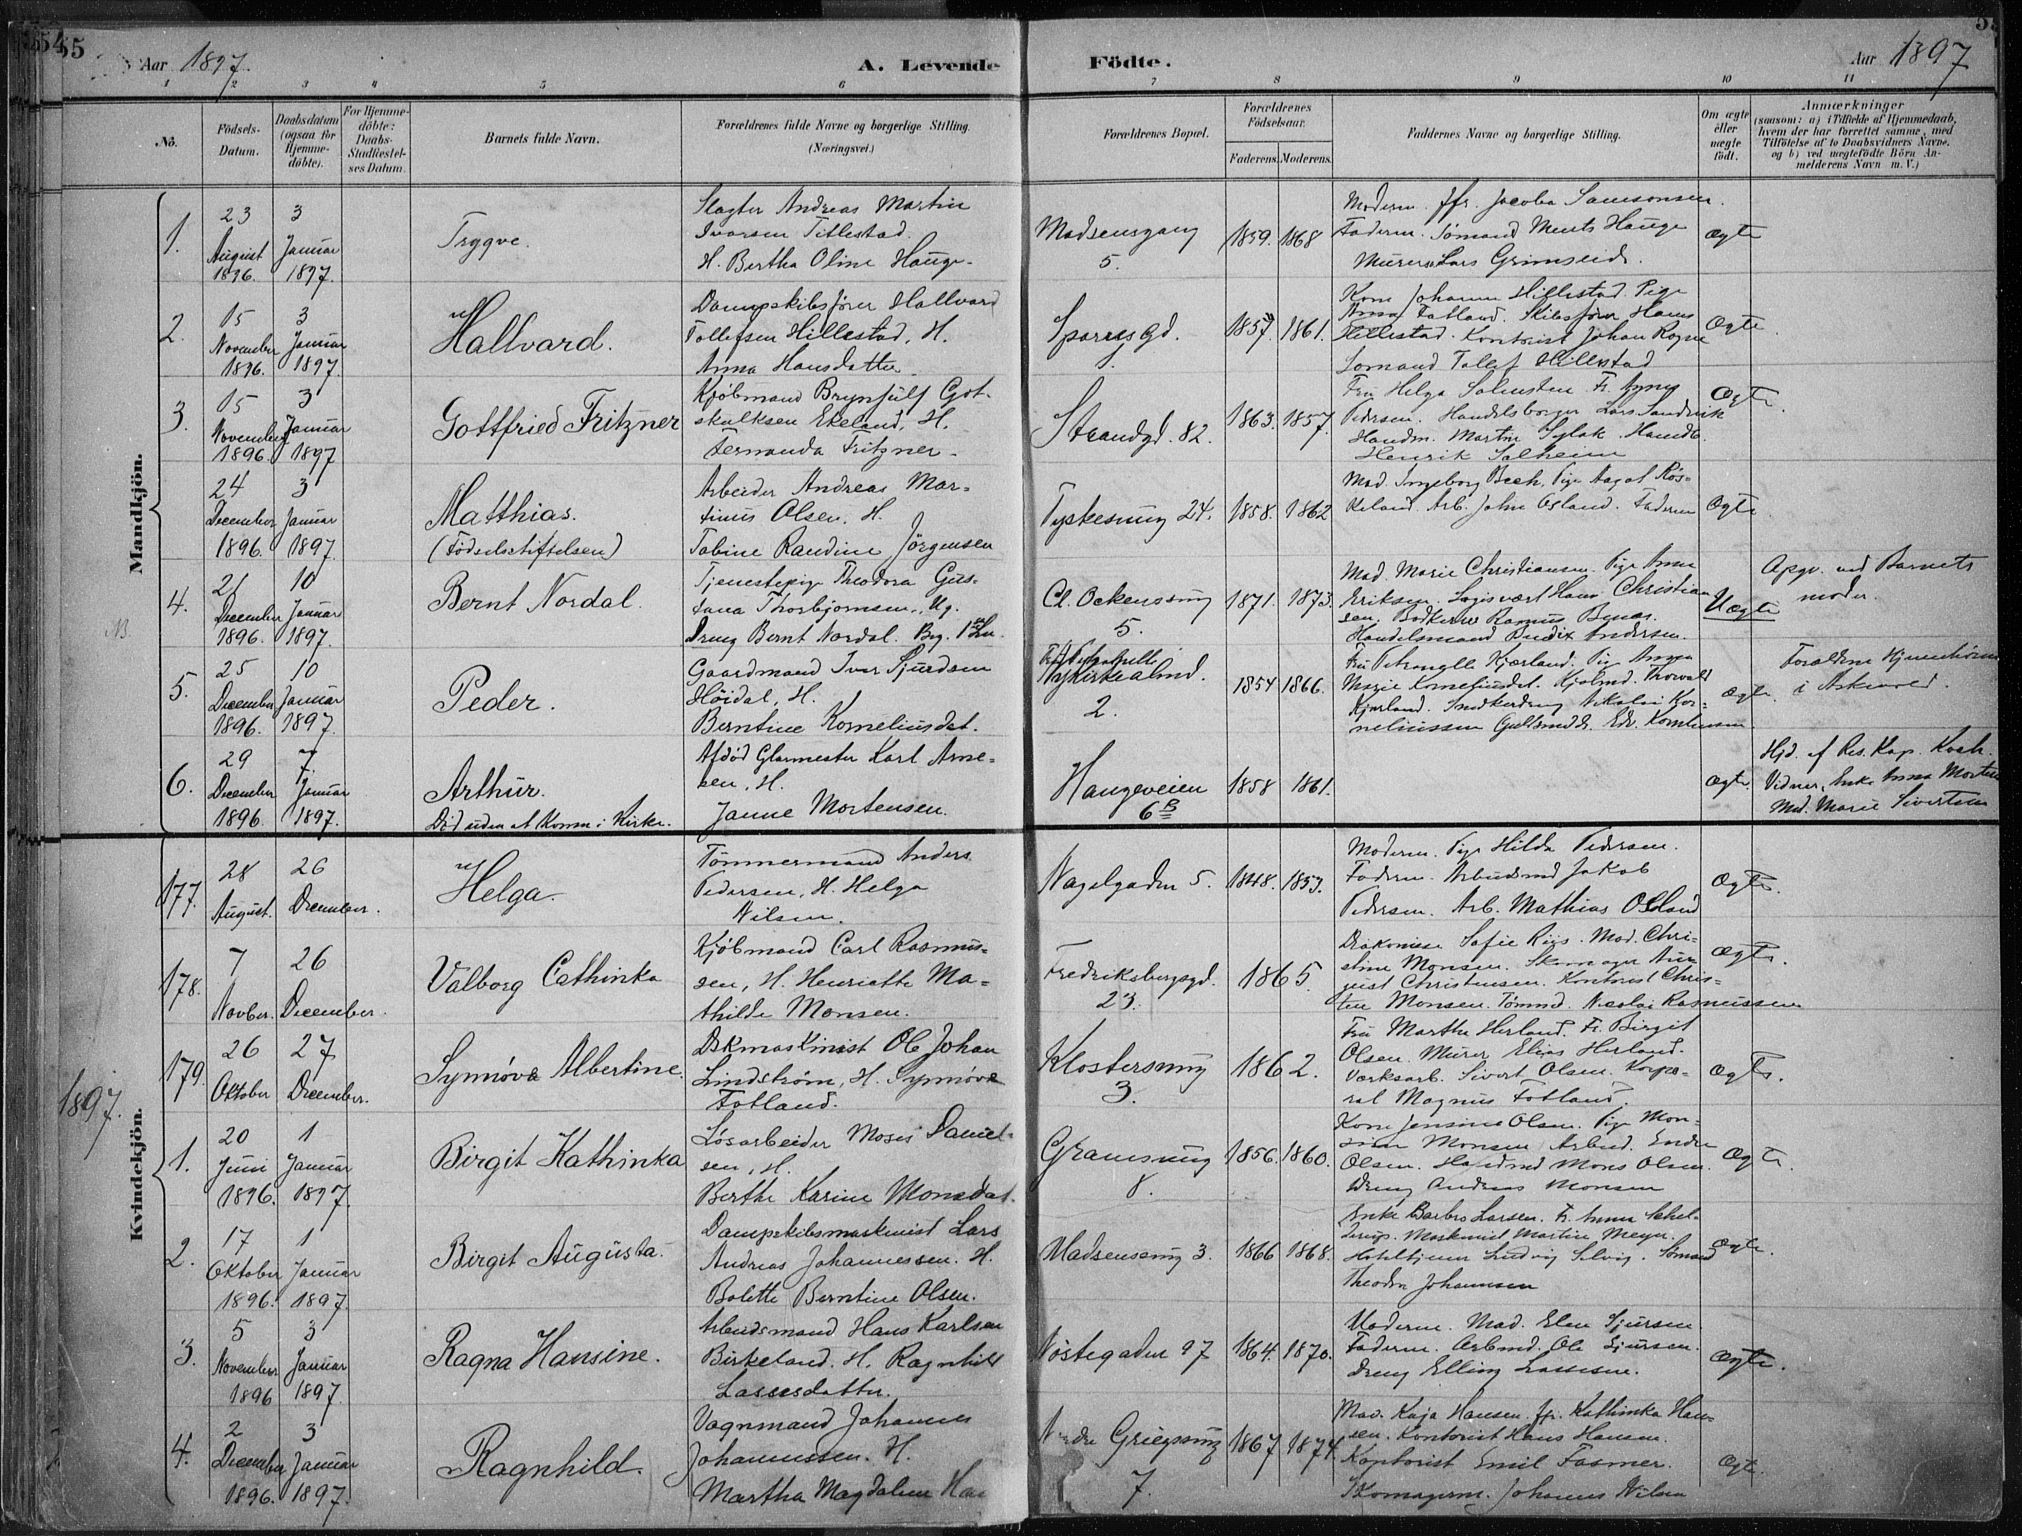 55
Aar 1897.
A. Levende Födte.
Aar 1897
1 2 3 4 5 6 7 8 9 10 11
No.
Födsels-
Datum.
Daabsdatum
(ogsaa for
Hjemme-
döbte).
For Hjemme-
döbte:
Daabs-
Stadfæstel-
ses Datum.
Barnets fulde Navn.
Forældrenes fulde Navne og borgerlige Stilling.
(Næringsvei.)
Forældrenes Bopæl.
Forældrenes
Födselsaar.
Faderens. Moderens.
Faddernes Navne og borgerlige Stilling.
Om ægte
eller
uægte
födt.
Anmærkninger
(saasom: a) i Tilfælde af Hjemmedaab,
hvem der har forrettet samme, med
Tilföielse af to Daabsvidners Navne,
og b) ved uægtefödte Börn An-
melderens Navn m. V.)
Mandkjön.
1.
23
August
1896.
3
Januar
1897.
Trygve.
Slagter Andreas Martin
Ivarsen Tillestad.
H. Bertha Oline Hauge.
Madsensgang
5.
1859. 1868
Moderen. Jfr. Jacoba Samsonsen.
Faderen. Sömand Ments Hauge
Murer Lars Grimseid.
Ægte
2.
15
November
1896.
3
Januar
1897.
Hallvard.
Dampskibsfører Hallvard
Tollefsen Hillestad, H.
Anna Hansdatter.
1857. 1861.
Kone Johanne Hillestad. Pige
Anna Fatland. Skibsfører Hans
Hillestad. Kontorist Johan Rogne
Sømand Tollef Hillestad
Ægte.
3.
15
November
1896.
3
Januar
1897
Gottfried Fritzner
Kjøbmand Brynjulf Got-
skalksen Ekeland, H.
Fernanda Fritzner.
Strandgd. 82.
1863. 1857.
Fru Helga
Pedersen. Handelsborger Lars Sandvik
Handm. Martin Hande.
Henrik Solheim
Ægte.
24
December
1896.
3
Januar
1897.
Matthias.
(Födselsstiftelsen)
Arbeider Andreas Mar-
tinus Olsen, H.
Tobine Randine Jörgensen
Tyskesmug 24.
1858. 1862
Mad. Ingeborg Bech, Pige Aagot Rös-
seland. Arb. John Osland. Faderen
Ægte.
4.
NB.
21
December
1896.
10
Januar
1897.
Bernt Nordal.
Tjenestepige Theodora Gus-
tava Thorbjørnsen, Ug.
Dreng Bernt Nordal.
Cl. Ockenssmug
5.
1871. 1873.
Mad. Marie Christiansen. Pige Anna
Eriksen. Logisvært Hans Christian-
sen. Bødker Rasmus
Handelsmand Andersen.
Uægte
Opgv. ved Barnets
moder.
5.
25
December
1896.
10
Januar
1897.
Peder.
Gaardmand Iver Sjurdsen
Höidal, H.
Berntine Korneliusdat.
Nykirkealmd.
2.
1854 1866.
Fru Petronelle Kjærland. Pig Anna
Marie Korneliusdat. Kjøbmd. Thorvald
Kjærland. Snedkerdreng Nikolai Kor-
neliussen Guldsmeds. Edv. Korneliussen
Ægte.
Forældrene hjemhørende
i Askevold.
6.
29
December
1896.
7.
Januar
1897.
Arthur.
Død uden at komme i Kirke.
Afdöd Glarmester Karl Arne-
sen, H.
Janne Mortensen.
Haugeveien
6B
1858 1861.
Ægte.
Hjd. af Res. Kap. Koch.
Vidner, Enke Anna Morten
Mad. Marie Sivertsen
177.
28
August.
26
December.
Helga.
Tømmermand Anders
Pedersen, H. Helga
Nilsen.
Nagelgaden 5.
1848. 1853.
Moderen. Pige Hilda Pedersen.
Faderen. Arbeidsmd Jakob
Pedersen. Arb. Mathias
Ægte.
178.
7
Novber.
26
December.
Valborg Cathinka
Kjöbmand Carl Rasmus-
sen, H. Henriette Ma-
thilde Monsen.
Fredriksbergsgd.
23.
1865.
Diakonisse Sofie Riis. Mad. Chri-
stine Monsen. Skomager Aug-
ust Christensen. Kontorist Chris-
ten Monsen. Tömmd. Nicolai Rasmussen
Ægte.
179.
26
Oktober
27
December.
Synnöve Albertine.
Dskmaskinist Ole Johan
Lindström, H. Synnöve
Fotland.
Klostersmug
3.
1862.
Fru Marthe Herland. Fr. Birgit
Olsen. Murer Elias Herland.
Værksarb. Sivert Olsen. Korpo-
ral Magnus Fotland.
Ægte.
1897.
Kvindekjön.
1.
20
Juni
1896.
1
Januar
1897.
Birgit Kathinka
Løsarbeider Moses Daniel-
sen, H.
Berthe Karine Monsdat.
Gramsmug
8.
1856. 1860.
Kone Jensine Olsen. Pige Mon-
sine Monsen, Arbmd. Endre
Olsen. Handmd Mons Olsen.
Dreng Andreas Monsen
Ægte.
2.
17
Oktober
1896.
1
Januar
1897.
Birgit Augusta.
Dampskibsmaskinist Lars
Andreas Johannessen. H.
Bolette Berntine Olsen.
Madsensmug 3.
1866 1868.
Enke Barbro Larsen. Fr. Anna
Maskinist Martin Meyer.
Hoteltjener Ludvig Selvig. Sømand
Theodor Johannsen
Ægte.
3.
5
November
1896
3
Januar
1897.
Ragna Hansine.
Arbeidsmand Hans Karlsen
Birkeland. H. Ragnhild
Lassesdatter.
Nøstegaden 97
1864. 1870.
Moderen. Mad. Elen Sjursen
Faderen. Arbmd. Ole Sjursen.
Dreng Elling Lassesen.
Ægte.
4.
2
December
1896.
3
Januar
1897.
Ragnhild.
Vognmand Johannes
Johannessen. H.
Martha Magdalene Han
Griegssmug
7.
1867 1874.
Mad. Kaja Hansen. Jfr. Kathinka Han-
sen. Kontorist Hans Hansen.
Kontorist Emil Fasmer.
Skomagerm. Johannes Nilsen
Ægte.